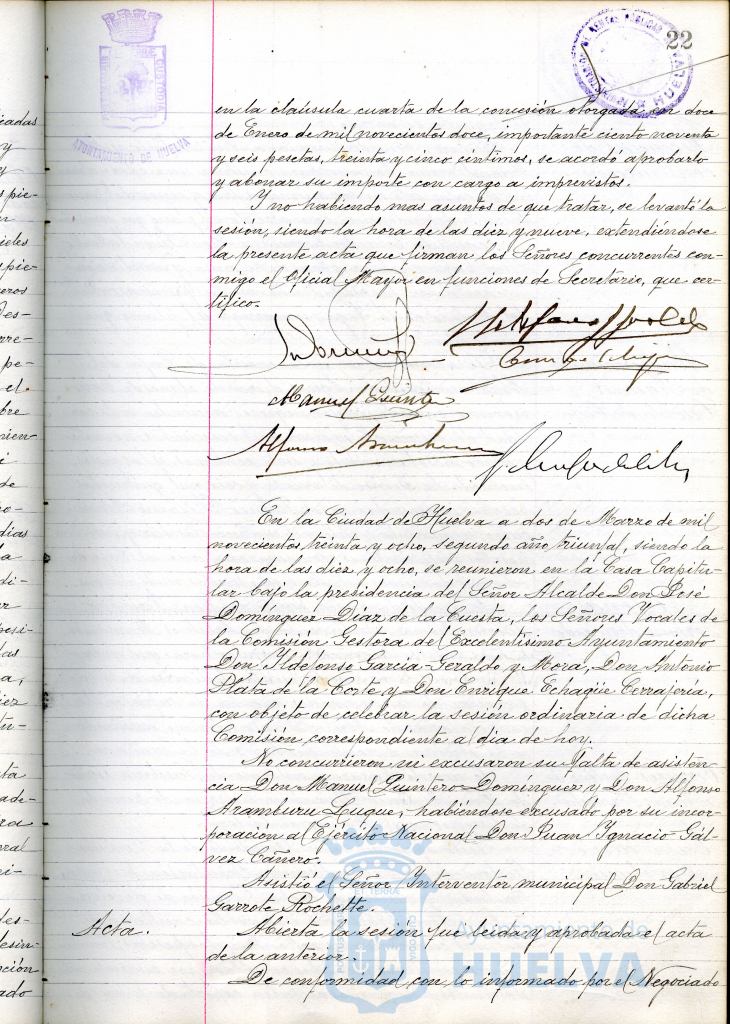 22
AYUNTAMIENTO DE HUELVA
en la cláusula cuarta de la concesión otorgada con doce
de Enero de mil novecientos doce, importante ciento noventa
y seis pesetas, treinta y cinco céntimos, se acordó aprobarlo
y abonar su importe con cargo a imprevistos.
Y no habiendo mas asuntos de que tratar, se levantó la
sesión, siendo la hora de las diez y nueve, extendiéndose
la presente acta que firman los Señores concurrentes con-
migo el Oficial Mayor en funciones de Secretario, que cer-
tifico.
Manuel Quintero
Alfonso
En la Ciudad de Huelva a dos de Marzo de mil
novecientos treinta y ocho, segundo año triunfal, siendo la
hora de las diez y ocho, se reunieron en la Casa Capitu-
lar bajo la presidencia del Señor Alcalde Don José
Domínguez Díaz de la Cuesta, los Señores Vocales de
la Comisión Gestora del Excelentísimo Ayuntamiento
Don Ildefonso García-Geraldo y Mora, Don Antonio
Plata de la Corte y Don Enrique Echagüe Cerrajeria,
con objeto de celebrar la sesión ordinaria de dicha
Comisión, correspondiente al dia de hoy.
No concurrieron ni excusaron su falta de asisten-
cia Don Manuel Quintero Domínguez y Don Alfonso
Aramburu Luque, habiéndose excusado por su incor-
poración al Ejército Nacional Don Juan Ygnacio Gál-
vez Cañero.
Asistió el Señor Interventor municipal Don Gabriel
Garrote Rochette.
Acta. Abierta la sesión fué leida y aprobada el acta
de la anterior.
De conformidad con lo informado por el Negociado
Ayuntamiento de
HUELVA